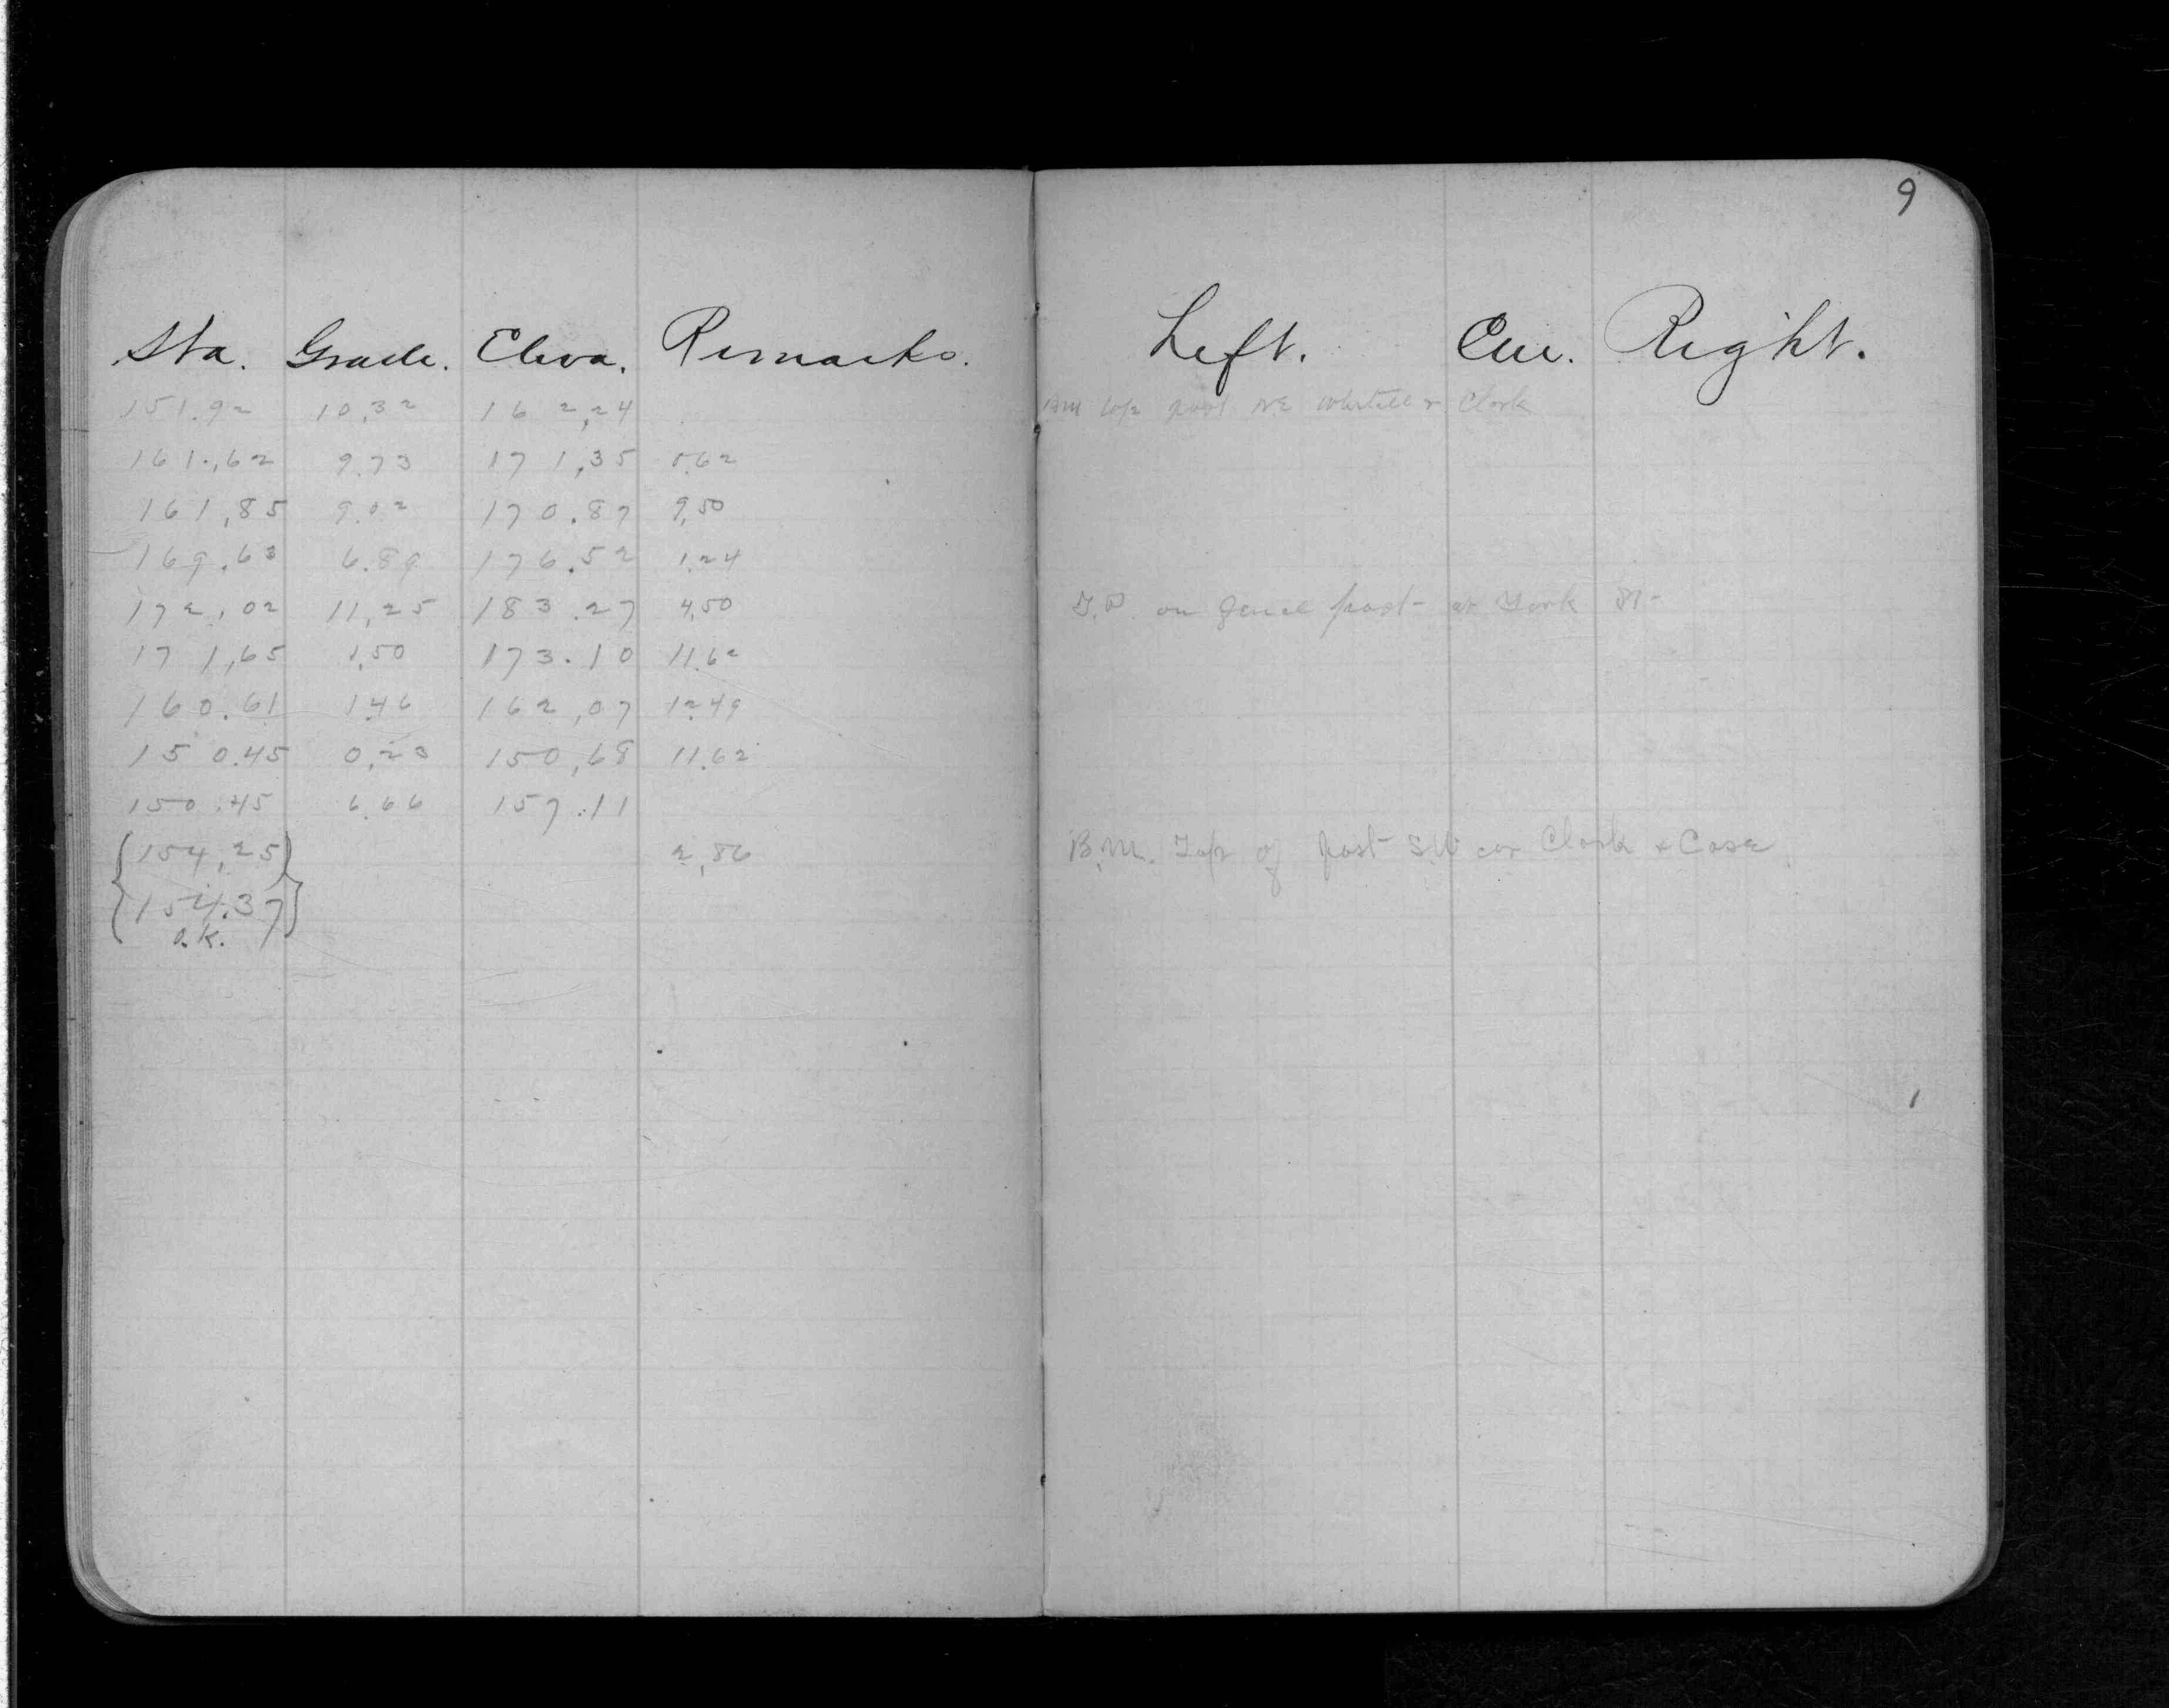 9
Sta. Grade. Eleva. Remarks. Left. Cen. Right.
151.92 10.32 162,24 BM top post NE Clark
161.,62 9.73 171,35 0.62
161,85 9.02 170.87 9,50
169.63 6.89 176.52 1.24
172,02 11,25 183.27 4,50 T.P. on fence post at York St
171,65 1,50 173.10 11.62
160.61 1.46 162,07 12.49
150.45 0,23 150,68 11.62
150.45 6.66 157.11
154,25 2,86 B.M. Top of post S.W cor Clark & Case
154.37
O.K.